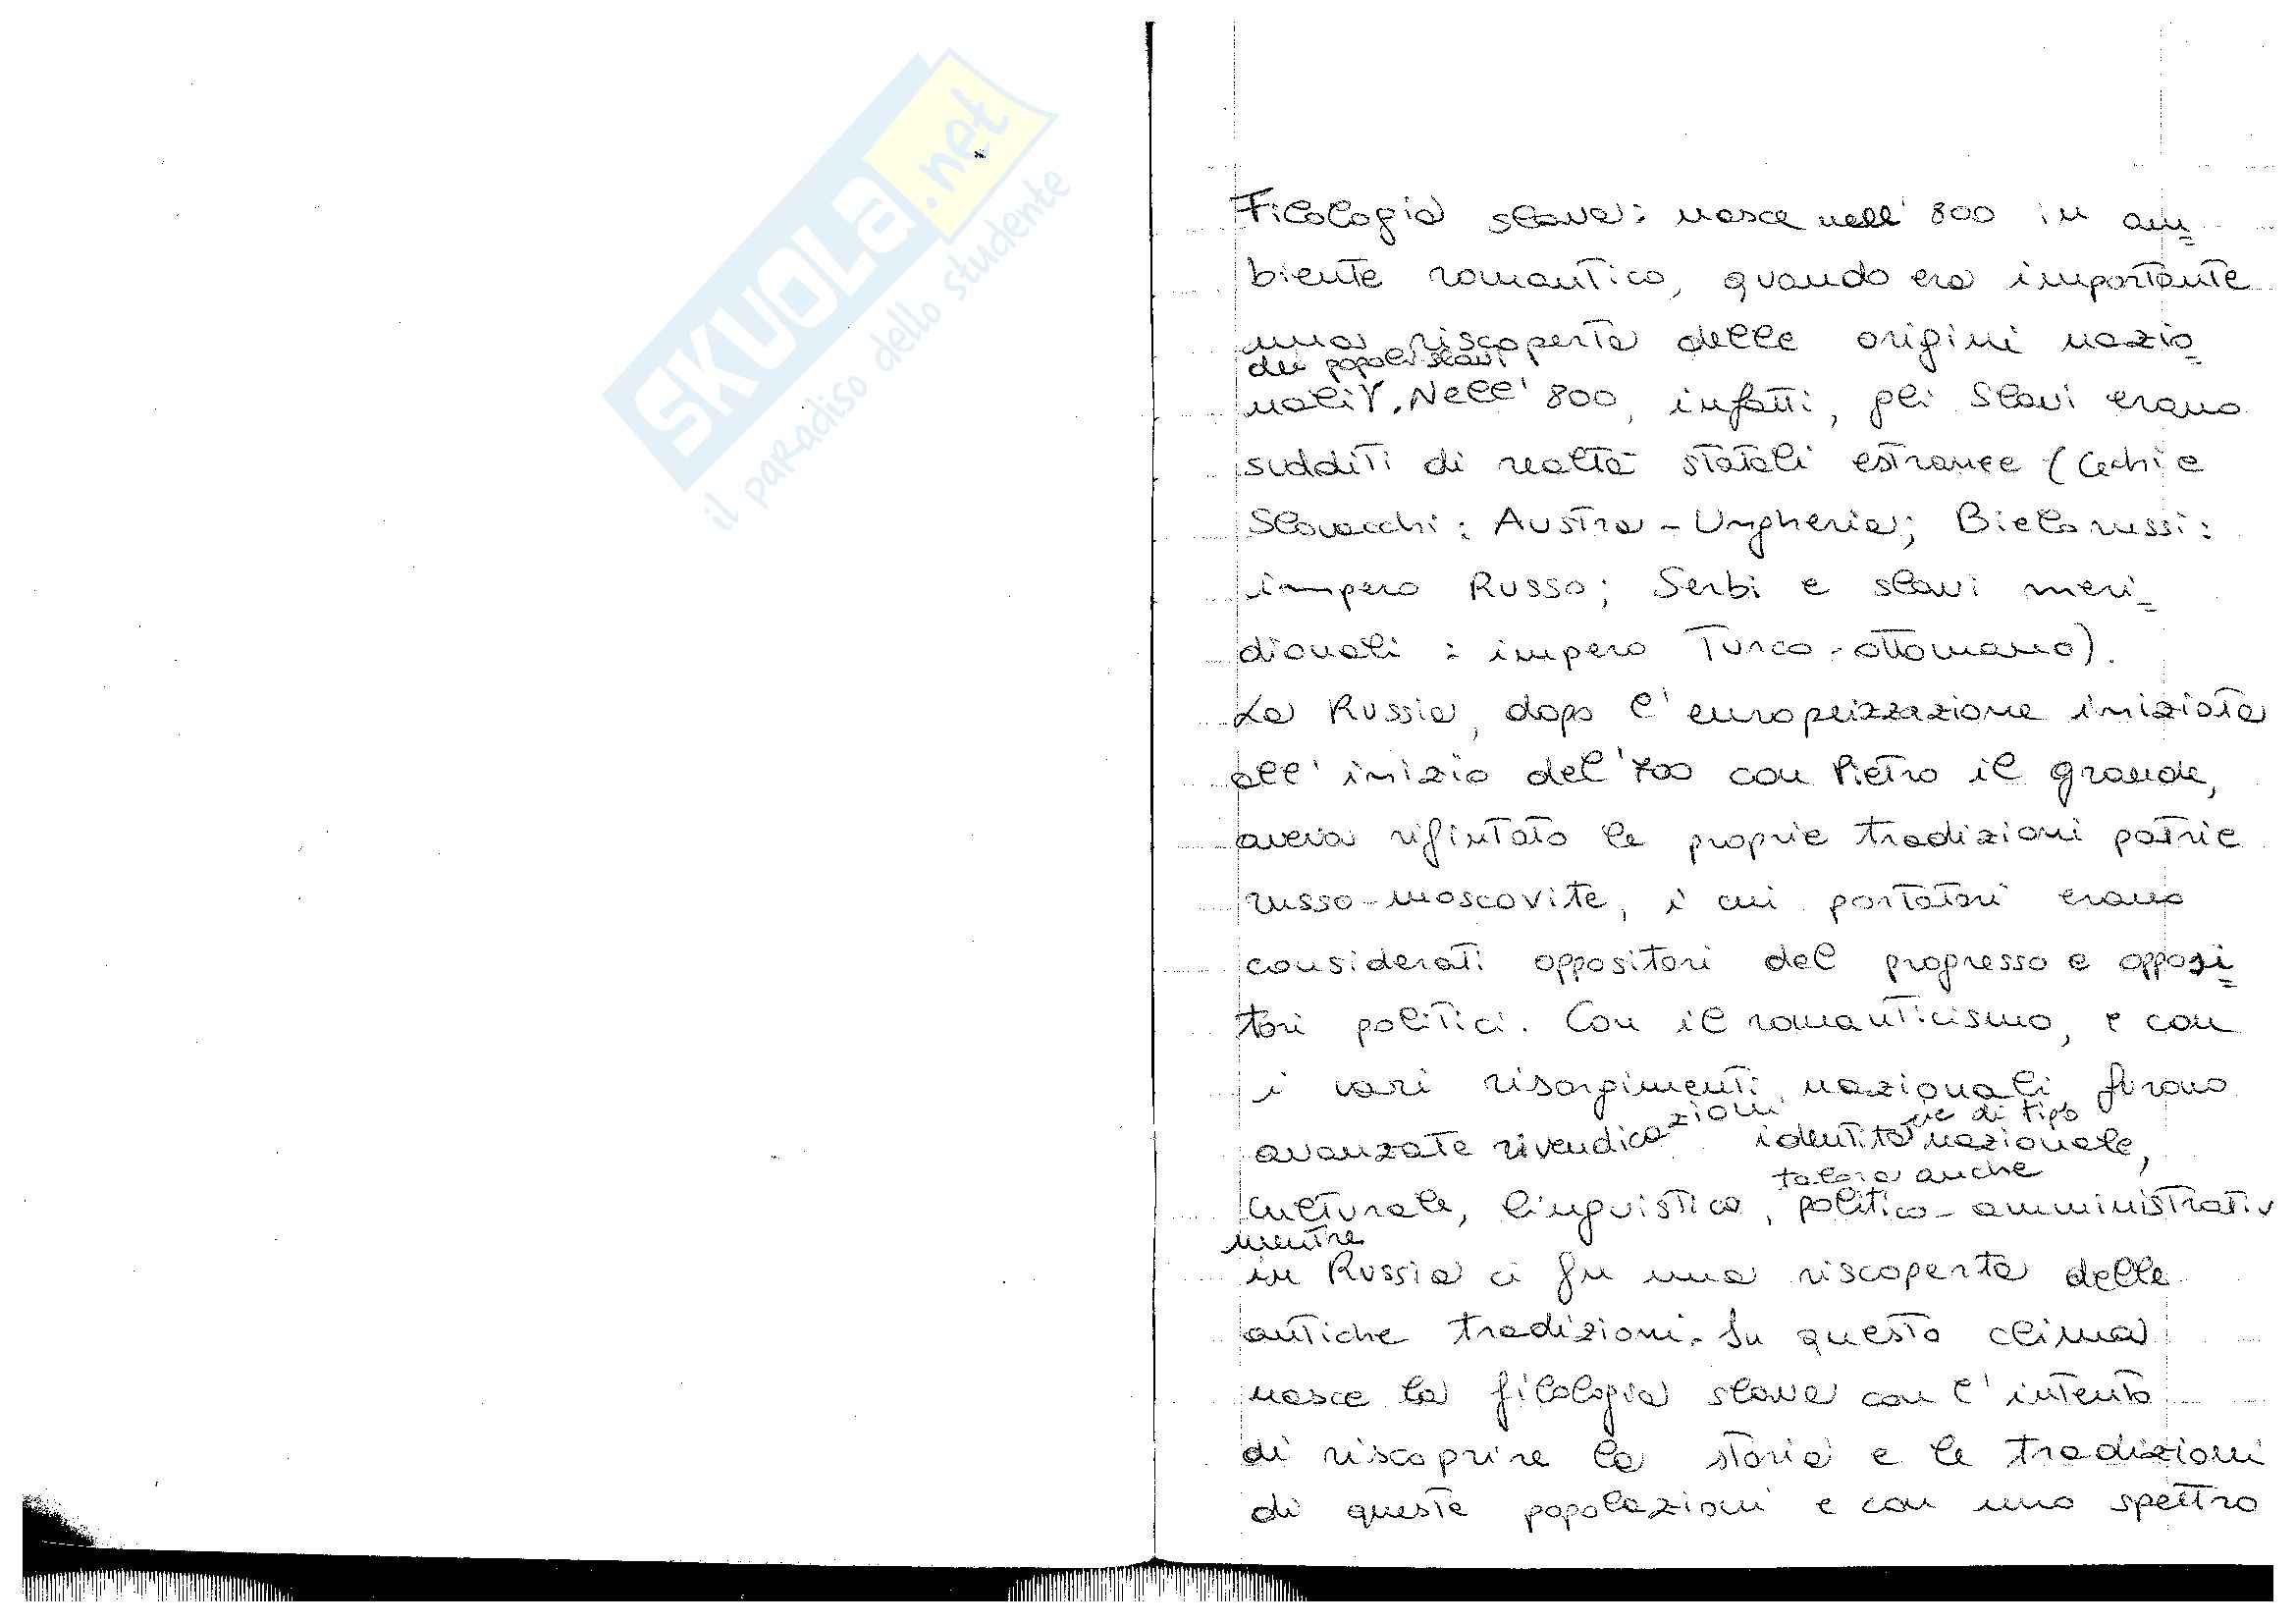 SKUOLA.net
il paradiso dello studente
Filologia slava: nasce nell'800 in am=
biente romantico, quando era importante
una riscoperta delle origini nazio=
dei popoli slavi
nali. Nell'800, infatti, gli Slavi erano
sudditi di realtà statali estranee (Cechi e
Slovacchi: Austro-Ungheria; Bielorussi:
impero Russo; Serbi e slavi meri=
dionali: impero Turco-ottomano).
La Russia, dopo l'europeizzazione iniziata
all'inizio del '700 con Pietro il grande,
aveva rifiutato le proprie tradizioni patrie
russo-moscovite, i cui portatori erano
considerati oppositori del progresso e opposi=
tori politici. Con il romanticismo, e con
i vari risorgimenti nazionali furono
avanzate rivendicazioni identitarie di tipo nazionale,
talora anche
culturale, linguistico, politico-amministrativ
mentre
in Russia ci fu una riscoperta delle
antiche tradizioni. In questo clima
nasce la filologia slava con l'intento
di riscoprire la storia e le tradizioni
di queste popolazioni e con uno spettro